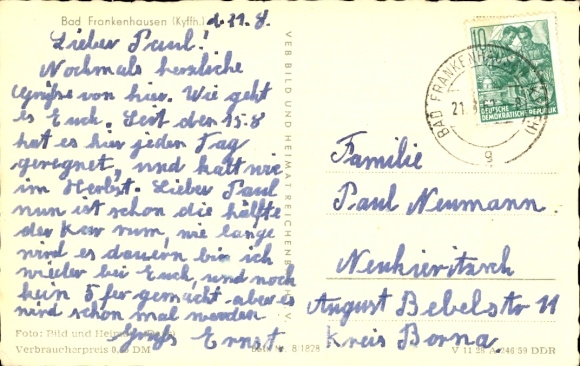 Bad Frankenhausen (Kyffh.) d. 21. 8.
Lieber Paul!
Nochmals herzliche
Grüße von hier. Wie geht
es Euch. Seit den 15.8
hat es hier jeden Tag
geregnet, und kalt wie
im Herbst. Lieber Paul
nun ist schon die hälfte
der Kur rum, wie lange
wird es dauern bin ich
wieder bei Euch, und noch
kein 5 fer gemacht aber es
wird schon mal werden
Gruß Ernst
Foto: Bild und
Verbraucherpreis DM
8/1828
VEB BILD UND HEIMAT REICHENB
10
DEUTSCHE
DEMOKRATISCHE REPUBLIK
BAD FRANKENHAUSEN
21.
g
Familie
Paul Neumann
Neukieritzsch
August Bebelstr 11
Kreis Borna
V 11 28 A 246 59 DDR